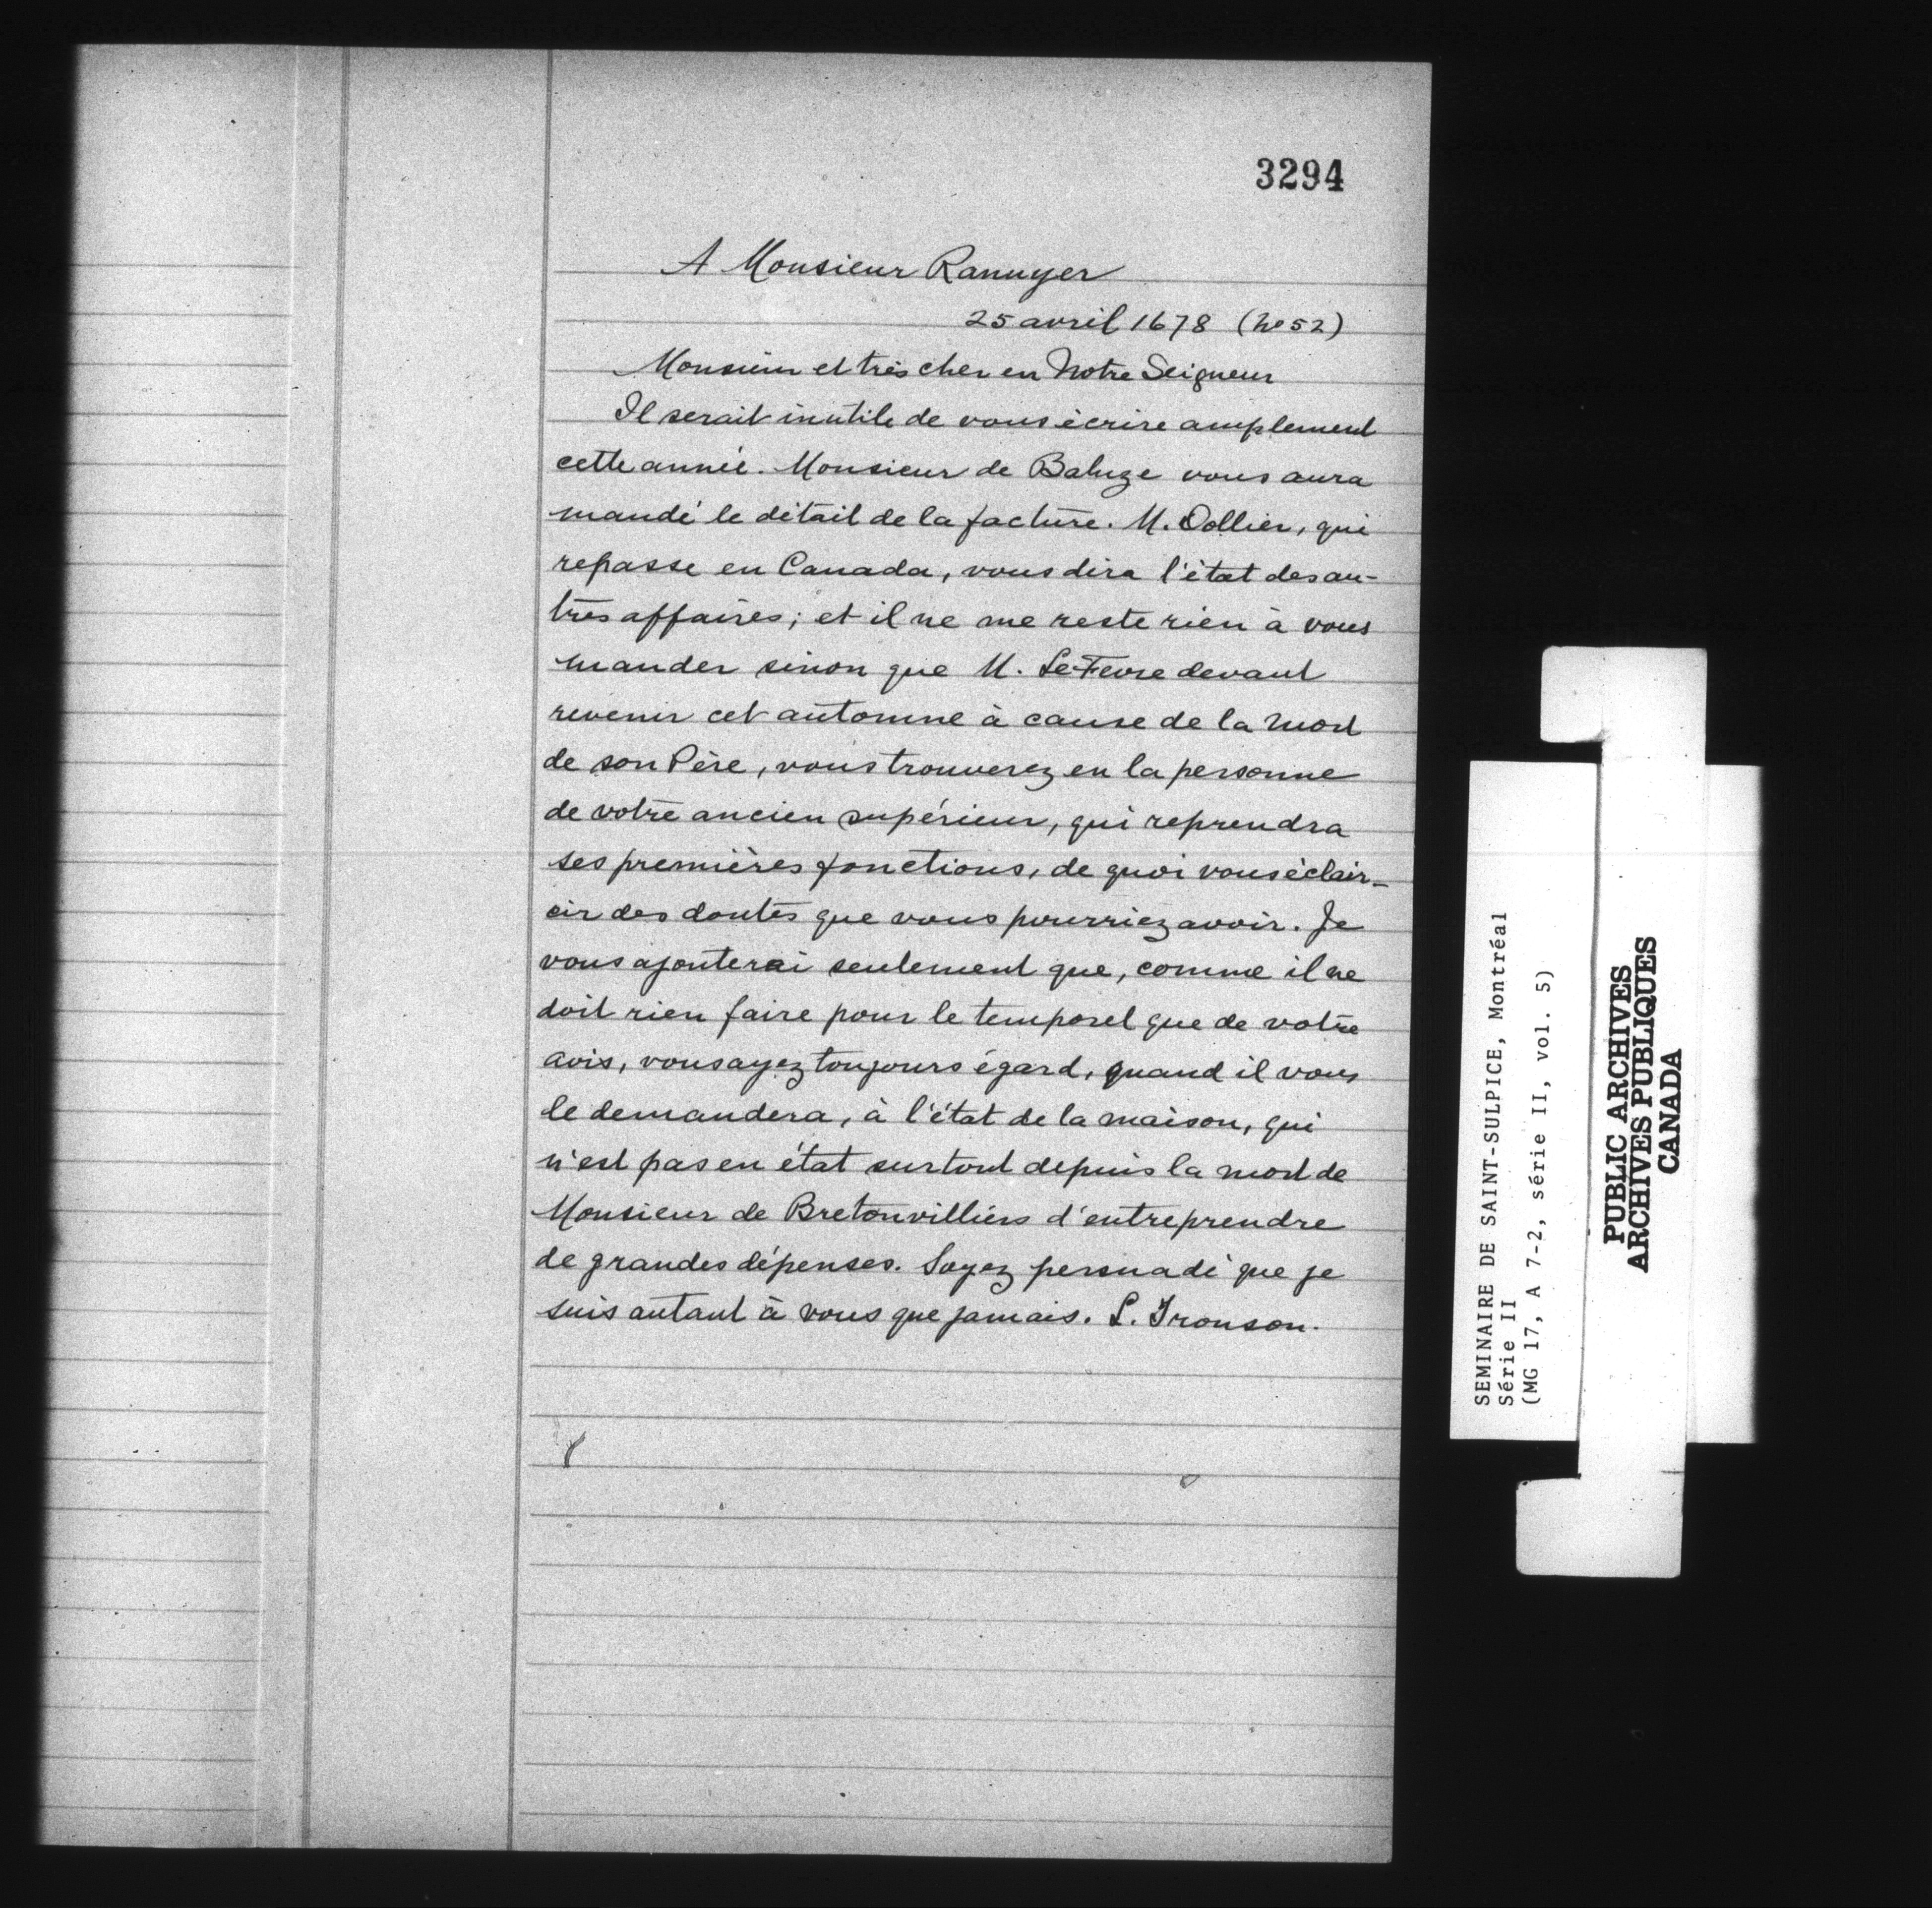 3294
A Monsieur Ranuyer
25 avril 1678 (No 52)
Monsieur et très cher en Notre Seigneur
Il serait inutile de vous écrire amplement
cette année. Monsieur de Baluze vous aura
mandé le détail de la facture. M. Dollier, qui
repasse en Canada, vous dira l'état des au-
tres affaires; et il ne me reste rien à vous
mander sinon que M. LeFevre devant
revenir cet automne à cause de la mort
de son Père, vous trouverez en la personne
de votre ancien supérieur, qui reprendra
ses premières fonctions, de quoi vous éclair-
cir des doutes que vous pourriez avoir. Je
vous ajouterai seulement que, comme il ne
doit rien faire pour le temporel que de votre
avis, vous ayez toujours égard, quand il vous
le demandera, à l'état de la maison, qui
n'est pas en état surtout depuis la mort de
Monsieur de Bretonvilliers d'entreprendre
de grandes dépenses. Soyez persuadé que je
suis autant à vous que jamais. L. Tronson.
SEMINAIRE DE SAINT-SULPICE, Montréal
Série II
(MG 17, A 7-2, série II, vol. 5)
PUBLIC ARCHIVES
ARCHIVES PUBLIQUES
CANADA